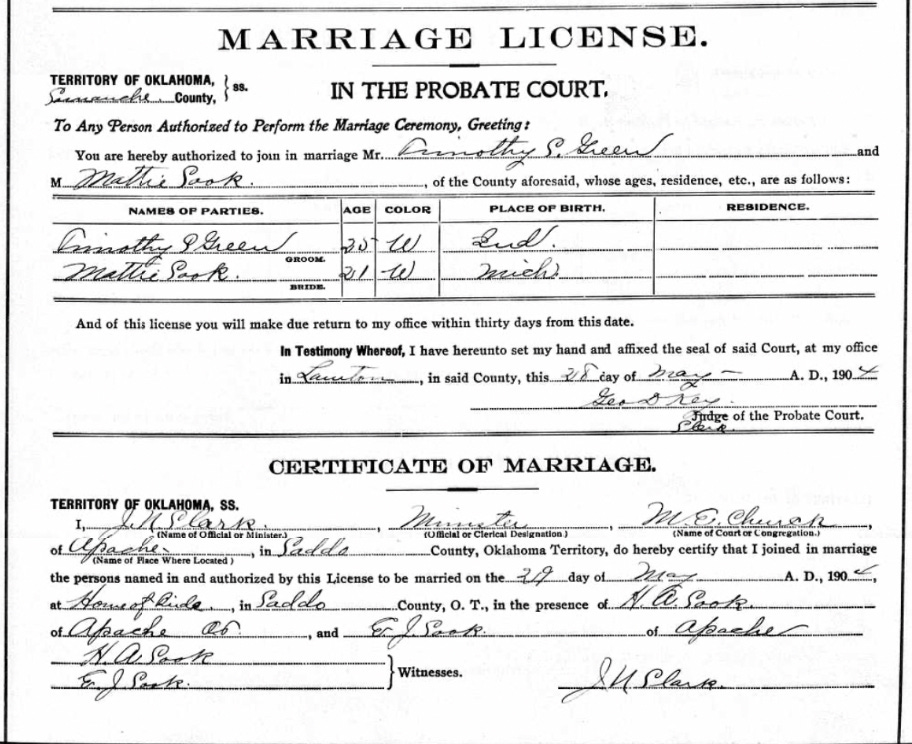 MARRIAGE LICENSE.
TERRITORY OF OKLAHOMA, } ss.
Comanche County,
IN THE PROBATE COURT.
To Any Person Authorized to Perform the Marriage Ceremony, Greeting:
You are hereby authorized to join in marriage Mr. Timothy P. Green and
M Mattie Cook. , of the County aforesaid, whose ages, residence, etc., are as follows:
NAMES OF PARTIES. AGE COLOR PLACE OF BIRTH. RESIDENCE.
Timothy P Green 25 W Ind.
GROOM.
Mattie Cook. 21 W Mich.
BRIDE.
And of this license you will make due return to my office within thirty days from this date.
In Testimony Whereof, I have hereunto set my hand and affixed the seal of said Court, at my office
in Lawton , in said County, this 28 day of May A. D., 1904
Geo D Key.
Judge of the Probate Court.
Clerk.
CERTIFICATE OF MARRIAGE.
TERRITORY OF OKLAHOMA, SS.
I, J. N Clark. , Minister , M. E. Church ,
(Name of Official or Minister.) (Official or Clerical Designation) (Name of Court or Congregation.)
of Apache , in Caddo County, Oklahoma Territory, do hereby certify that I joined in marriage
(Name of Place Where Located)
the persons named in and authorized by this License to be married on the 29 day of May A. D., 1904,
at Home of bride , in Caddo County, O. T., in the presence of H. A. Cook.
of Apache , and E. J. Cook. of Apache
H. A Cook
E. J Cook. } Witnesses.
J. N Clark.